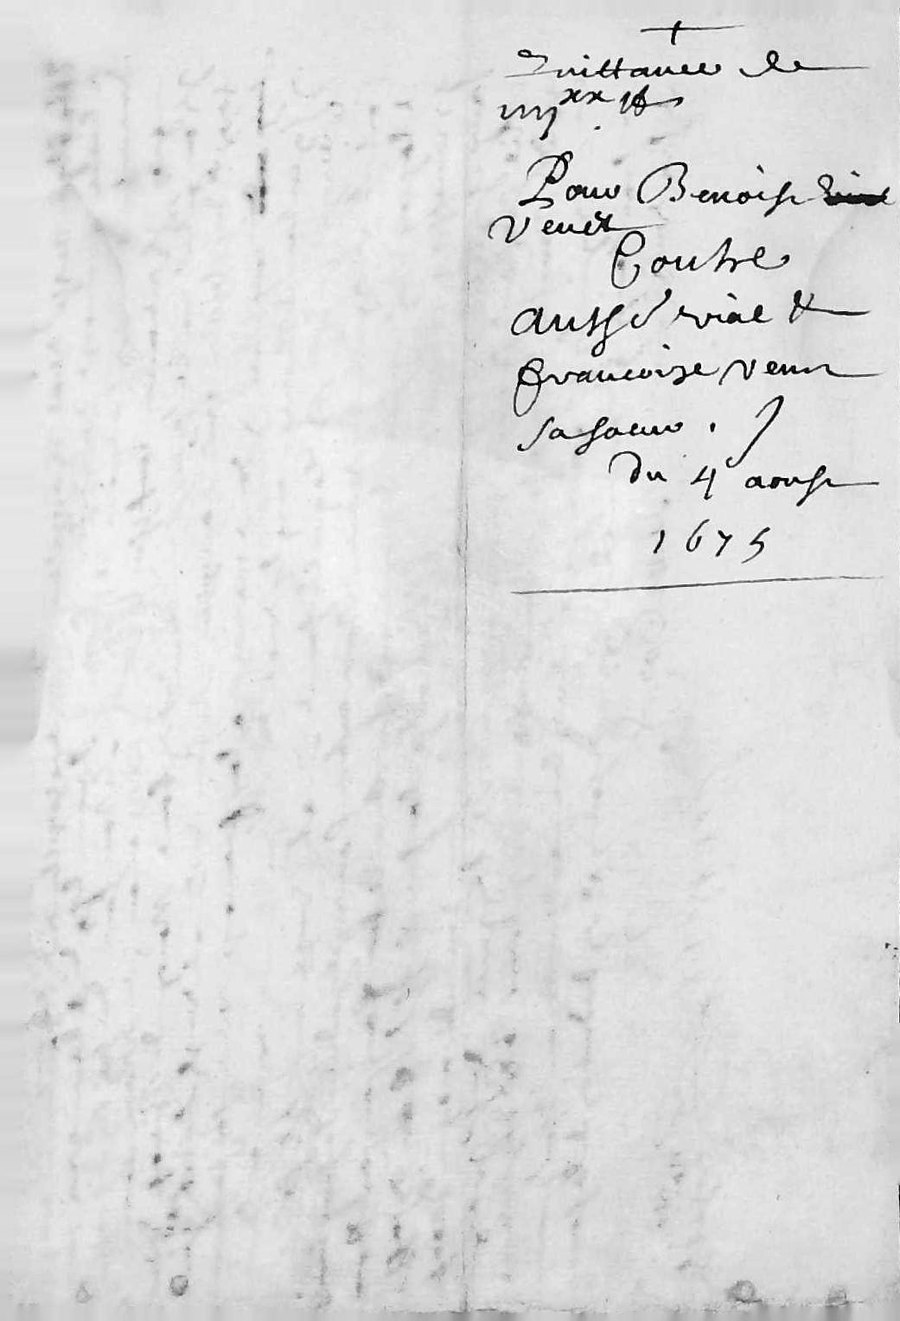 +
Quittance de
iiij xx ll
Pour Benoist
Venet
Contre
Anthe vial &
Francoise venet
sa soeur .
du 4 aoust
1675